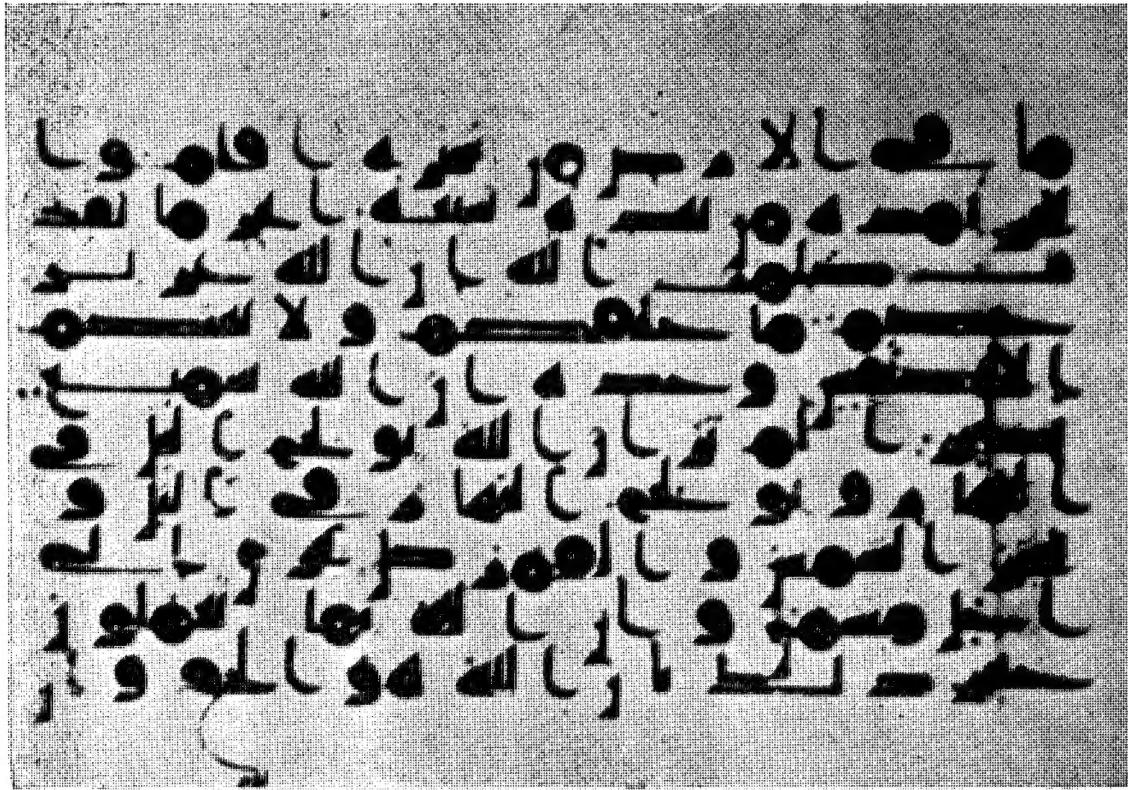 ما في الارض من شجره اقلم وا
لبحر يمده من بعده سبعه ابحر ما نفد
ت كلمت الله ان الله عزيز
حكيم ما خلقكم ولا بعثكم
الا كنفس وحده ان الله سميع بصير
الم تر ان الله يولج اليل في
النهار ويولج النهار في اليل و
سخر الشمس والقمر كل يجري الى
اجل مسمى وان الله بما تعملون
خبير ذلك بان الله هو الحق وان